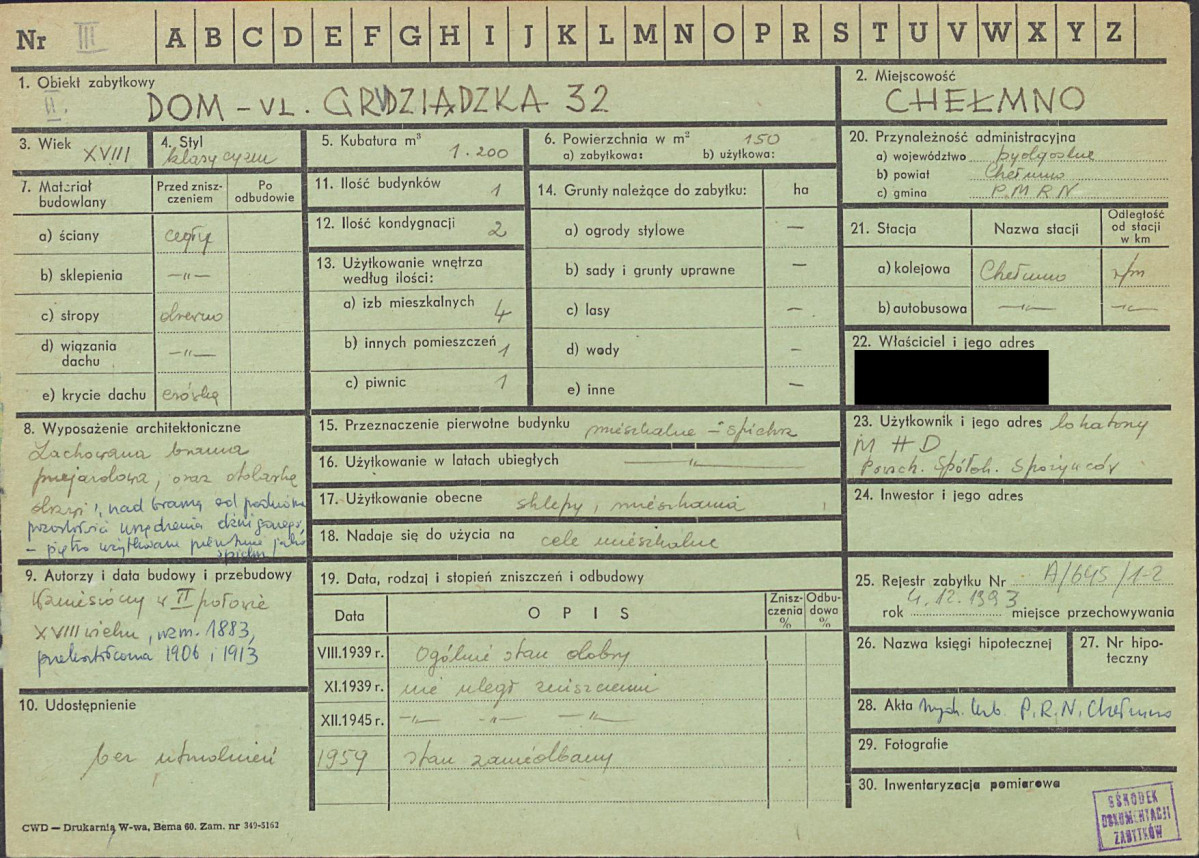 Nr III A B C D E F G H I J K L M N O P R S T U V W X Y Z
1. Obiekt zabytkowy
II.
DOM - UL. GRUDZIĄDZKA 32
2. Miejscowość
CHEŁMNO
3. Wiek
XVIII
4. Styl
klasycyzm
5. Kubatura m³
1.200
6. Powierzchnia w m² 150
a) zabytkowa: b) użytkowa:
7. Materiał budowlany
Przed zniszczeniem
Po odbudowie
a) ściany cegły
b) sklepienia —"—
c) stropy drewno
d) wiązania dachu —"—
e) krycie dachu
8. Wyposażenie architektoniczne
Zachowana brama
przejazdowa, oraz
drzwi, nad bramą od podwórza
pozostałości urządzenia dźwigowego,
- piętro użytkowane jako
spichrz
9. Autorzy i data budowy i przebudowy
Wzniesiony w II połowie
XVIII wieku, wzm. 1883,
przekształcona 1906 i 1913
10. Udostępnienie
bez utrudnień
11. Ilość budynków 1
12. Ilość kondygnacji 2
13. Użytkowanie wnętrza
według ilości:
a) izb mieszkalnych 4
b) innych pomieszczeń 1
c) piwnic 1
14. Grunty należące do zabytku: ha
a) ogrody stylowe —
b) sady i grunty uprawne —
c) lasy —
d) wody —
e) inne —
15. Przeznaczenie pierwotne budynku mieszkalne - spichrz
16. Użytkowanie w latach ubiegłych —"—
17. Użytkowanie obecne sklepy, mieszkania
18. Nadaje się do użycia na cele mieszkalne
19. Data, rodzaj i stopień zniszczeń i odbudowy
Data
O P I S
Zniszczenia %
Odbudowa %
VIII.1939 r. Ogólnie stan dobry
XI.1939 r. nie uległ zniszczeniu
XII.1945 r. —"— —"— —"—
1959 stan zaniedbany
20. Przynależność administracyjna
a) województwo bydgoskie
b) powiat Chełmno
c) gmina P.M.R.N
21. Stacja
Nazwa stacji
Odległość od stacji w km
a) kolejowa Chełmno n/m
b) autobusowa —"— —"—
22. Właściciel i jego adres
23. Użytkownik i jego adres lokatorzy
M H D
Powsz. Spółdz. Spożywców
24. Inwestor i jego adres
25. Rejestr zabytku Nr A/645/1-2
4.12.1993
rok miejsce przechowywania
26. Nazwa księgi hipotecznej
27. Nr hipoteczny
28. Akta P.R.N. Chełmno
29. Fotografie
30. Inwentaryzacja pomiarowa
OŚRODEK
DOKUMENTACJI
ZABYTKÓW
CWD — Drukarnia W-wa, Bema 60. Zam. nr 349-5162